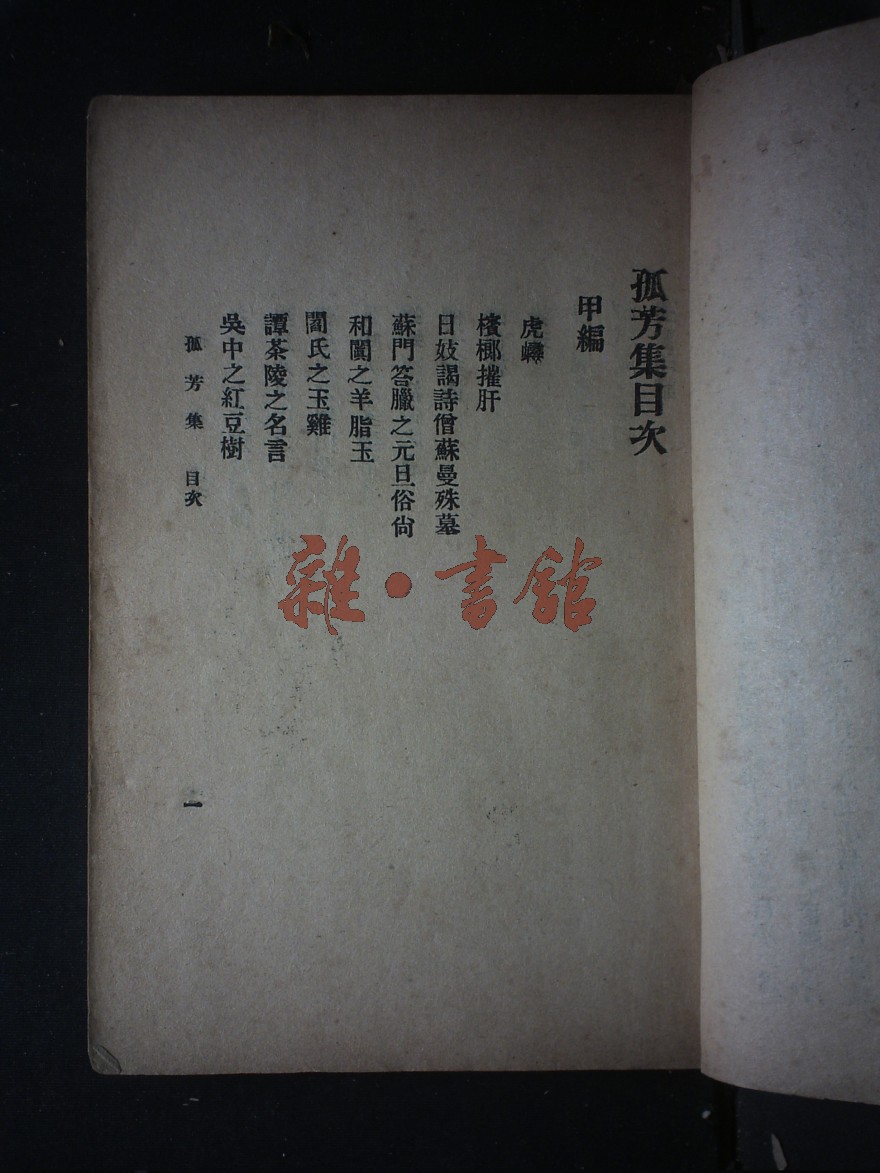 孤芳集目次
甲編
虎嶧
檳榔摧肝
日妓謁詩僧蘇曼殊墓
蘇門答臘之元旦俗尙
和闐之羊脂玉
閻氏之玉雞
譚茶陵之名言
吳中之紅豆樹
孤芳集 目次
一
雜·書館